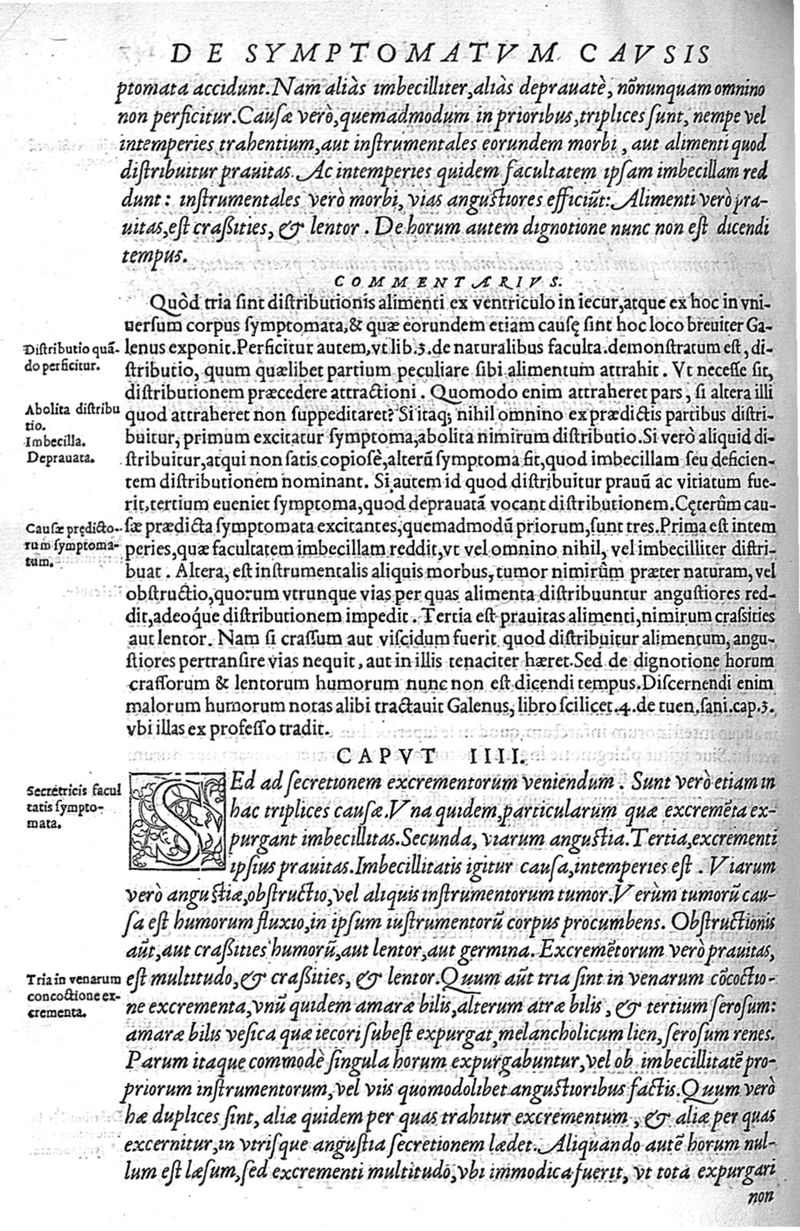 DE SYMPTOMATVM CAVSIS
ptomata accidunt. Nam aliàs imbecilliter, aliàs deprauatè, nõnunquam omnino
non perficitur. Causæ verò, quemadmodum in prioribus, triplices sunt, nempe vel
intemperies trahentium, aut instrumentales eorundem morbi, aut alimenti quod
distribuitur prauitas. Ac intemperies quidem facultatem ipsam imbecillam red
dunt: instrumentales verò morbi, vias angustiores efficiũt: Alimenti verò pra-
uitas, est craßities, & lentor. De horum autem dignotione nunc non est dicendi
tempus.
COMMENTARIVS.
Quòd tria sint distributionis alimenti ex ventriculo in iecur, atque ex hoc in vni-
uersum corpus symptomata, & quæ eorundem etiam causę sint hoc loco breuiter Ga-
Distributio quã-
do perficitur.
lenus exponit. Perficitur autem, vt lib. 3. de naturalibus faculta. demonstratum est, di-
stributio, quum quælibet partium peculiare sibi alimentum attrahit. Vt necesse sit,
distributionem præcedere attractioni. Quomodo enim attraheret pars, si altera illi
Abolita distribu
tio.
Imbecilla.
Deprauata.
quod attraheret non suppeditaret? Si itaq; nihil omnino ex prædictis partibus distri-
buitur, primum excitatur symptoma, abolita nimirum distributio. Si verò aliquid di-
stribuitur, atqui non satis copiosè, alterũ symptoma fit, quod imbecillam seu deficien-
tem distributionem nominant. Si autem id quod distribuitur prauũ ac vitiatum fue-
rit, tertium eueniet symptoma, quod deprauatã vocant distributionem. Cęterũm cau-
Causæ prędicto-
rum symptoma-
tum.
sæ prædicta symptomata excitantes, quemadmodũ priorum, sunt tres. Prima est intem
peries, quæ facultatem imbecillam reddit, vt vel omnino nihil, vel imbecilliter distri-
buat. Altera, est instrumentalis aliquis morbus, tumor nimirũm præter naturam, vel
obstructio, quorum vtrunque vias per quas alimenta distribuuntur angustiores red-
dit, adeoq́ue distributionem impedit. Tertia est prauitas alimenti, nimirum crassities
aut lentor. Nam si crassum aut viscidum fuerit quod distribuitur alimentum, angu-
stiores pertransire vias nequit, aut in illis tenaciter hæret. Sed de dignotione horum
crassorum & lentorum humorum nunc non est dicendi tempus. Discernendi enim
malorum humorum notas alibi tractauit Galenus, libro scilicet. 4. de tuen. sani. cap. 3.
vbi illas ex professo tradit.
CAPVT IIII.
Secretricis facul
tatis sympto-
mata.
SEd ad secretionem excrementorum veniendum. Sunt verò etiam in
hac triplices causæ. Vna quidem, particularum quæ excremẽta ex-
purgant imbecillitas. Secunda, viarum angustia. Tertia, excrementi
ipsius prauitas. Imbecillitatis igitur causa, intemperies est. Viarum
verò angustiæ, obstructio, vel aliquis instrumentorum tumor. Verùm tumorũ cau-
sa est humorum fluxio, in ipsum iustrumentorũ corpus procumbens. Obstructionis
aũt, aut craßities humorũ, aut lentor, aut germina. Excremẽtorum verò prauitas,
Tria in venarum
concoctione ex-
crementa.
est multitudo, & craßities, & lentor. Quum aũt tria sint in venarum cõcoctio-
ne excrementa, vnũ quidem amaræ bilis, alterum atræ bilis, & tertium serosum:
amaræ bilis vesica quæ iecori subest expurgat, melancholicum lien, serosum renes.
Parum itaque commodè singula horum expurgabuntur, vel ob imbecillitatẽ pro-
priorum instrumentorum, vel viis quomodolibet angustioribus factis. Quum verò
hæ duplices sint, aliæ quidem per quas trahitur excrementum, & aliæ per quas
excernitur, in vtrisque angustia secretionem lædet. Aliquando autẽ horum nul-
lum est læsum, sed excrementi multitudo, vbi immodica fuerit, vt tota expurgari
non